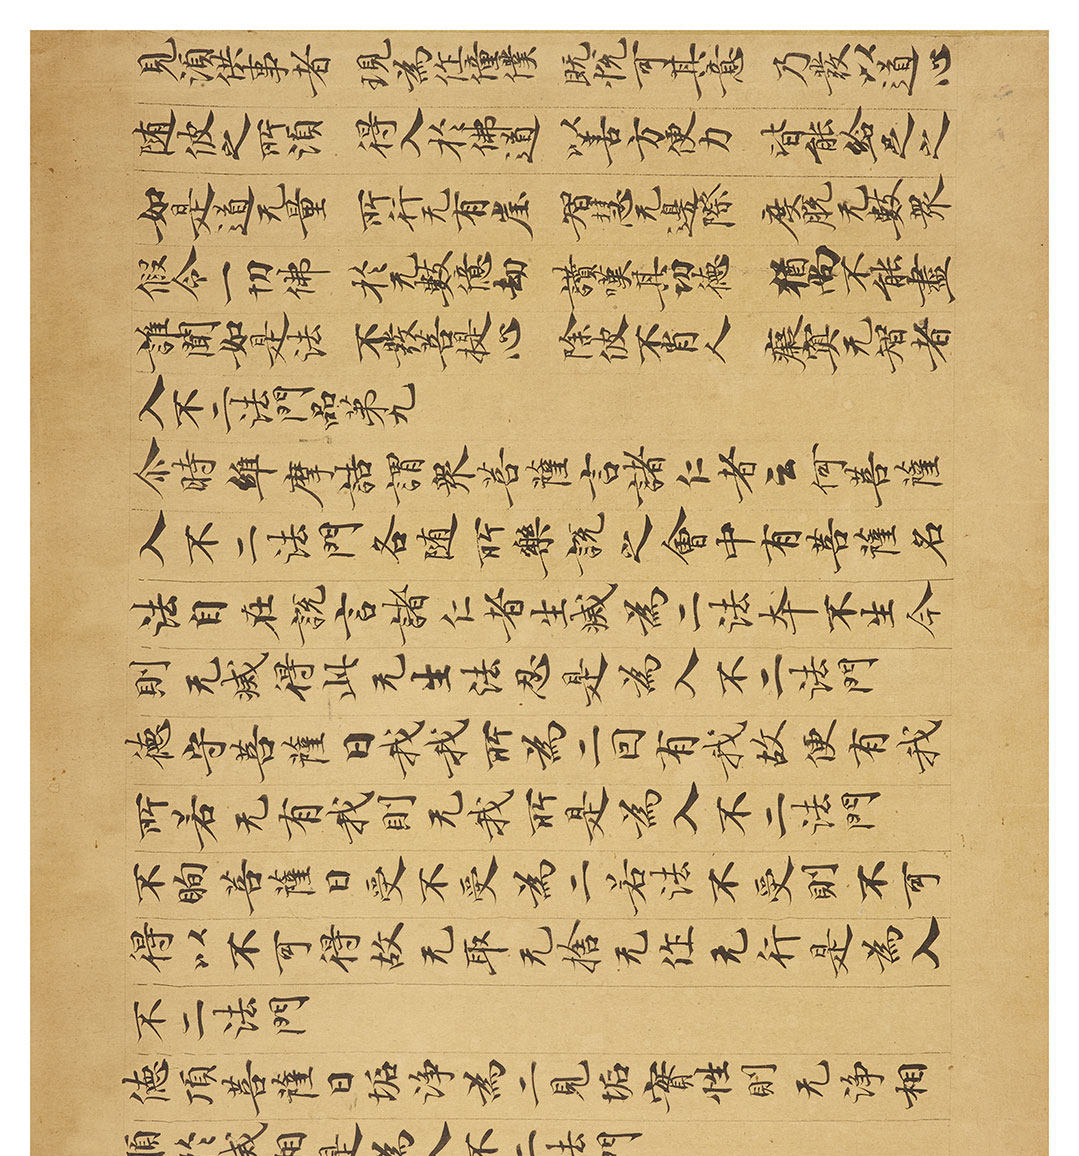 見須供事者 現為作僮僕 既悅可其意 乃發以道心
随彼之所須 得入於佛道 以善方便力 皆能給足之
如是道无量 所行无有崖 智慧无邊際 度脫无數衆
假令一切佛 於无數億劫 讚嘆其功德 猶尚不能盡
誰聞如是法 不發菩提心 除彼不肖人 癡冥无智者
入不二法門品第九
尒時維摩詰謂衆菩薩言諸仁者云何菩薩
入不二法門各随所樂說之會中有菩薩名
法自在說言諸仁者生滅為二法本不生今
則无滅得此无生法忍是為入不二法門
德守菩薩曰我我所為二因有我故便有我
所若无有我則无我所是為入不二法門
不眴菩薩曰受不受為二若法不受則不可
得以不可得故无取无捨无作无行是為入
不二法門
德頂菩薩曰垢淨為二見垢實性則无淨相
順於滅相是為入不二法門